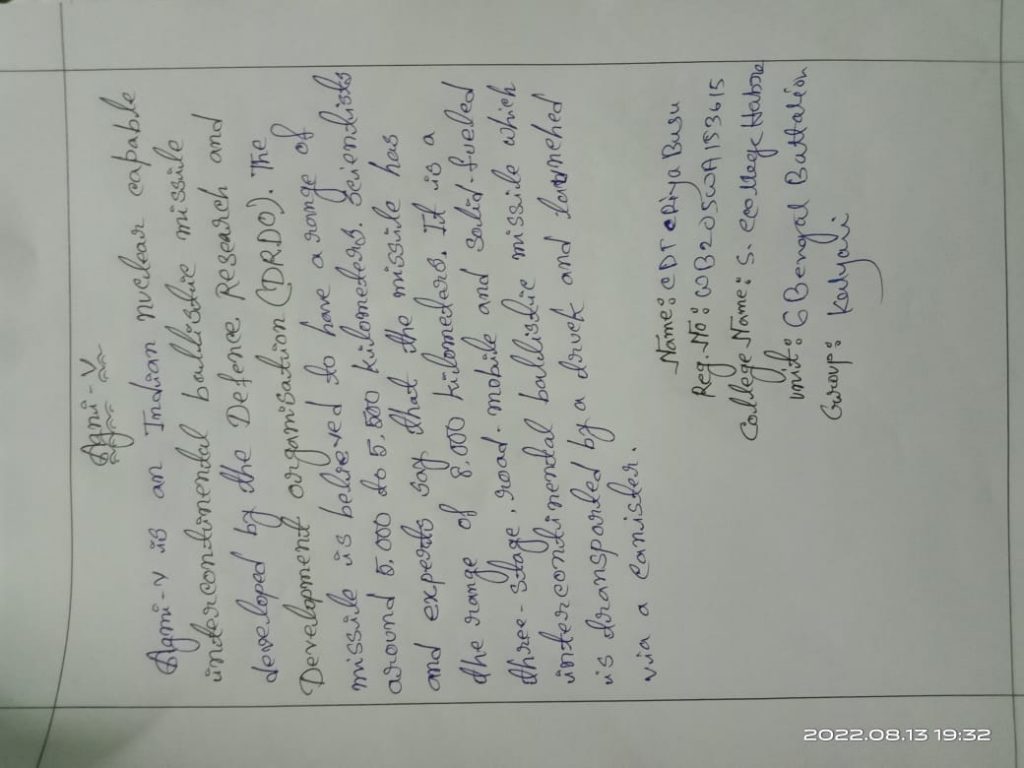 Agni-V
Agni-V is an Indian nuclear capable
intercontinental ballistic missile
developed by the Defence Research and
Development organisation (DRDO). The
missile is believed to have a range of
around 5.000 to 5,500 kilometers. Scientists
and experts say that the missile has
the range of 8.000 kilometers. It is a
three-stage, road-mobile and solid-fueled
intercontinental ballistic missile which
is transported by a truck and launched
via a canister.
Name: CDT Riya Basu
Reg. No: WB20SWA153615
College Name: S. C College Habra
unit: 6 Bengal Battalion
Group: Kalyani
2022.08.13 19:32